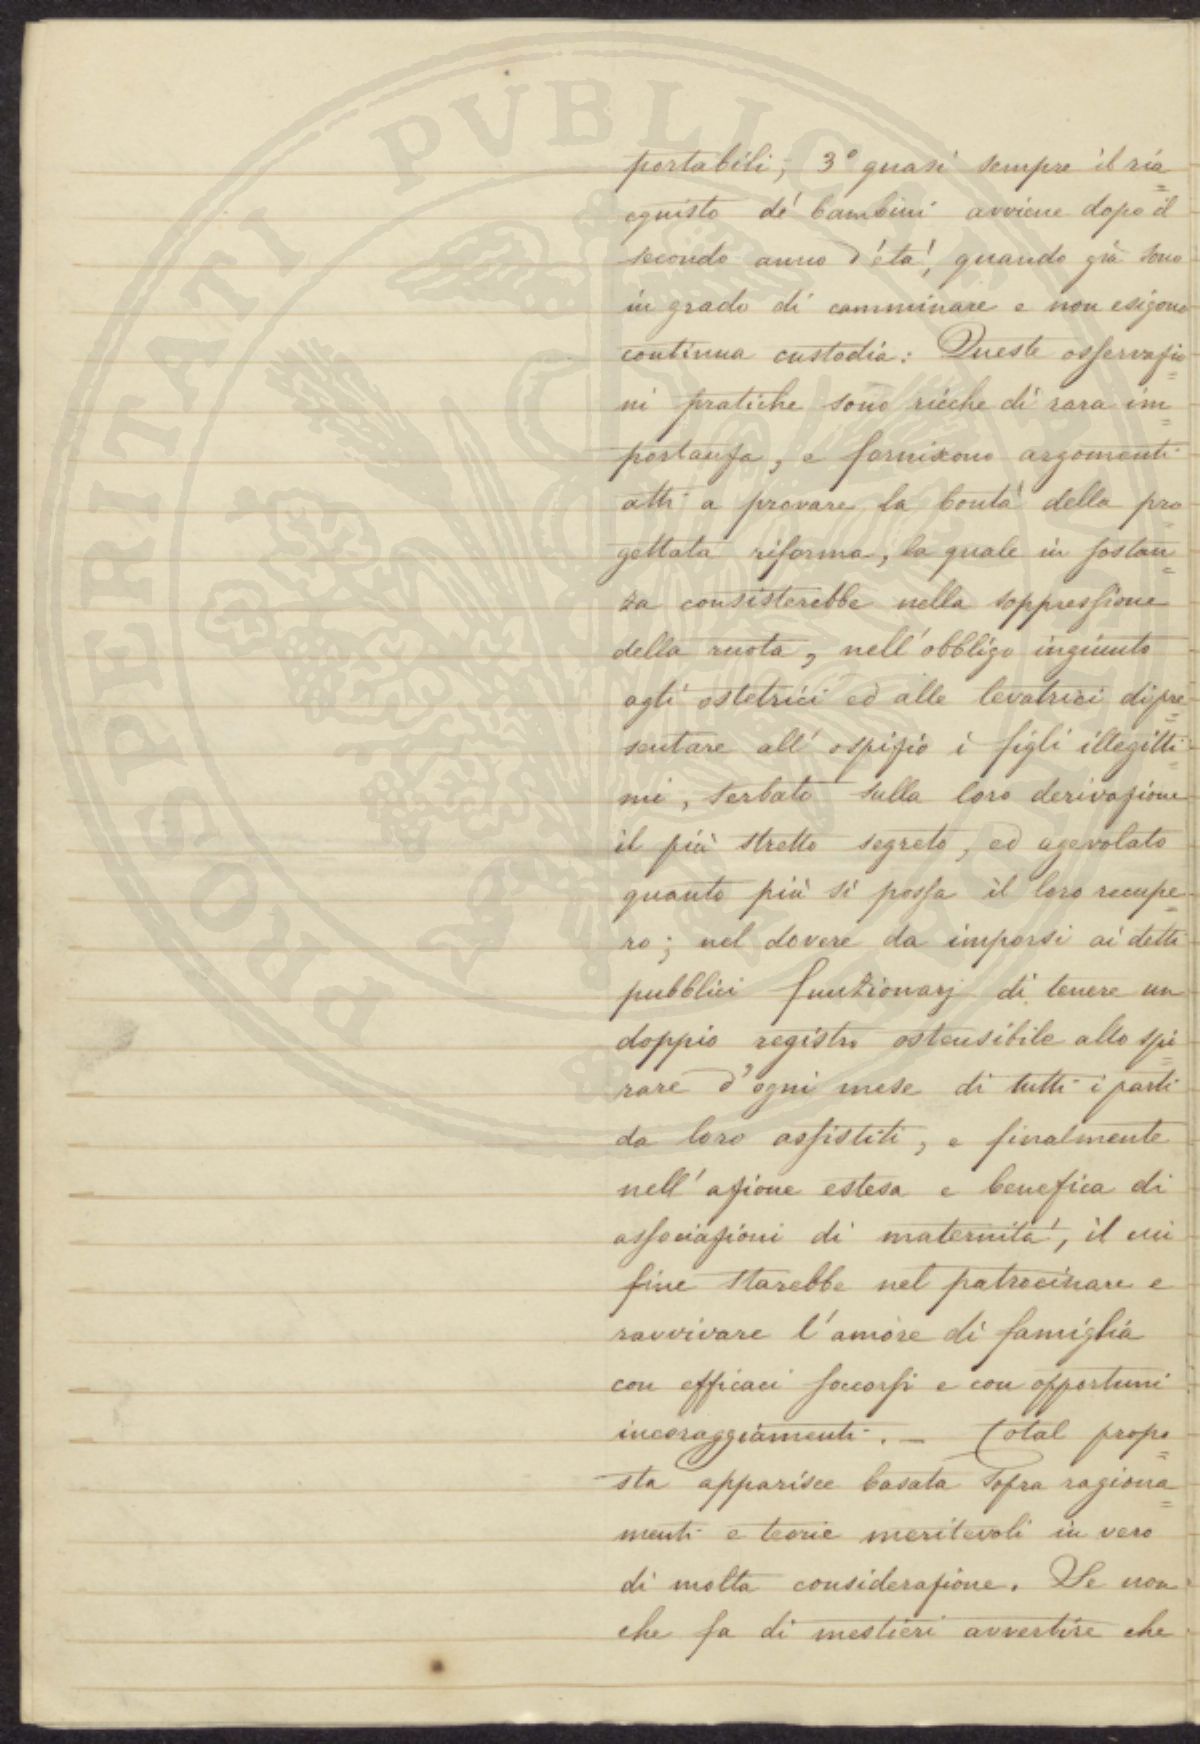 PROSPERITATI PVBLICAE
portabili; 3° quasi sempre il ria=
cquisto de' bambini avviene dopo il
secondo anno d'età, quando già sono
in grado di camminare e non esigono
continua custodia: Queste osservazio=
ni pratiche sono ricche di rara im=
portanza, e forniscono argomenti
atti a provare la bontà della pro=
gettata riforma, la quale in sostan=
za consisterebbe nella soppressione
della ruota, nell'obbligo ingiunto
agli ostetrici ed alle levatrici di pre=
sentare all'ospizio i figli illegitti=
mi, serbato sulla loro derivazione
il più stretto segreto, ed agevolato
quanto più si possa il loro recupe=
ro; nel dovere da imporsi ai detti
pubblici funzionarj di tenere un
doppio registro ostensibile allo spi=
rare d'ogni mese di tutti i parti
da loro assistiti, e finalmente
nell'azione estesa e benefica di
associazioni di maternità, il cui
fine starebbe nel patrocinare e
ravvivare l'amore di famiglia
con efficaci soccorsi e con opportuni
incoraggiamenti. — Cotal propo=
sta apparisce basata sopra ragiona=
menti e teorie meritevoli in vero
di molta considerazione. Se non
che fa di mestieri avvertire che